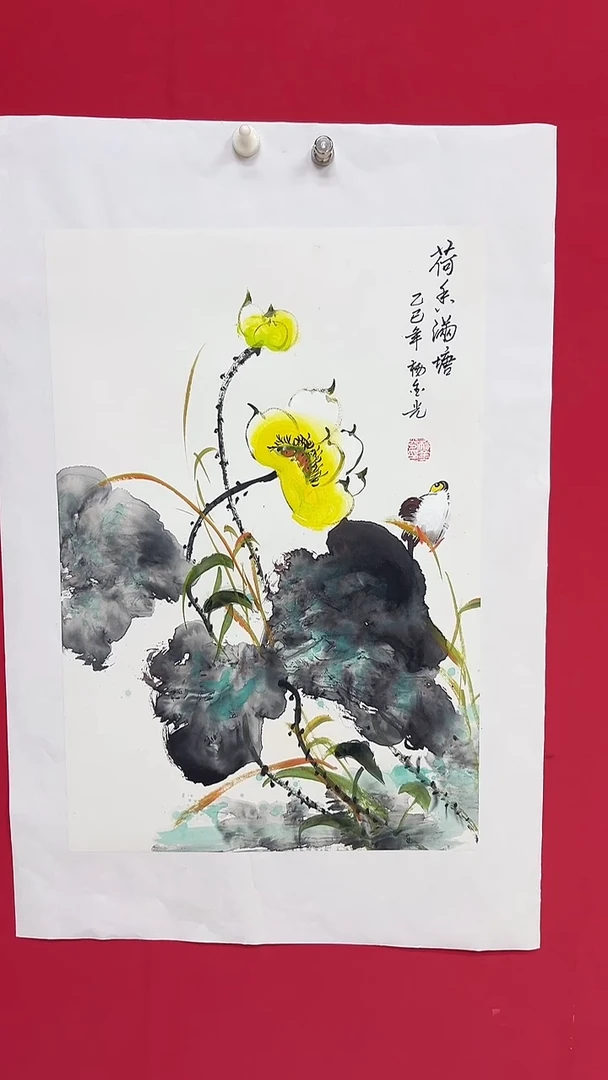 荷香满塘
乙巳年 杨金光